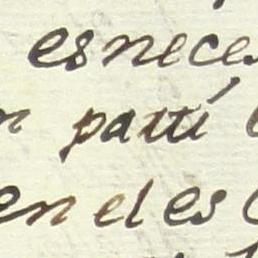 es nece
n partí
en el es